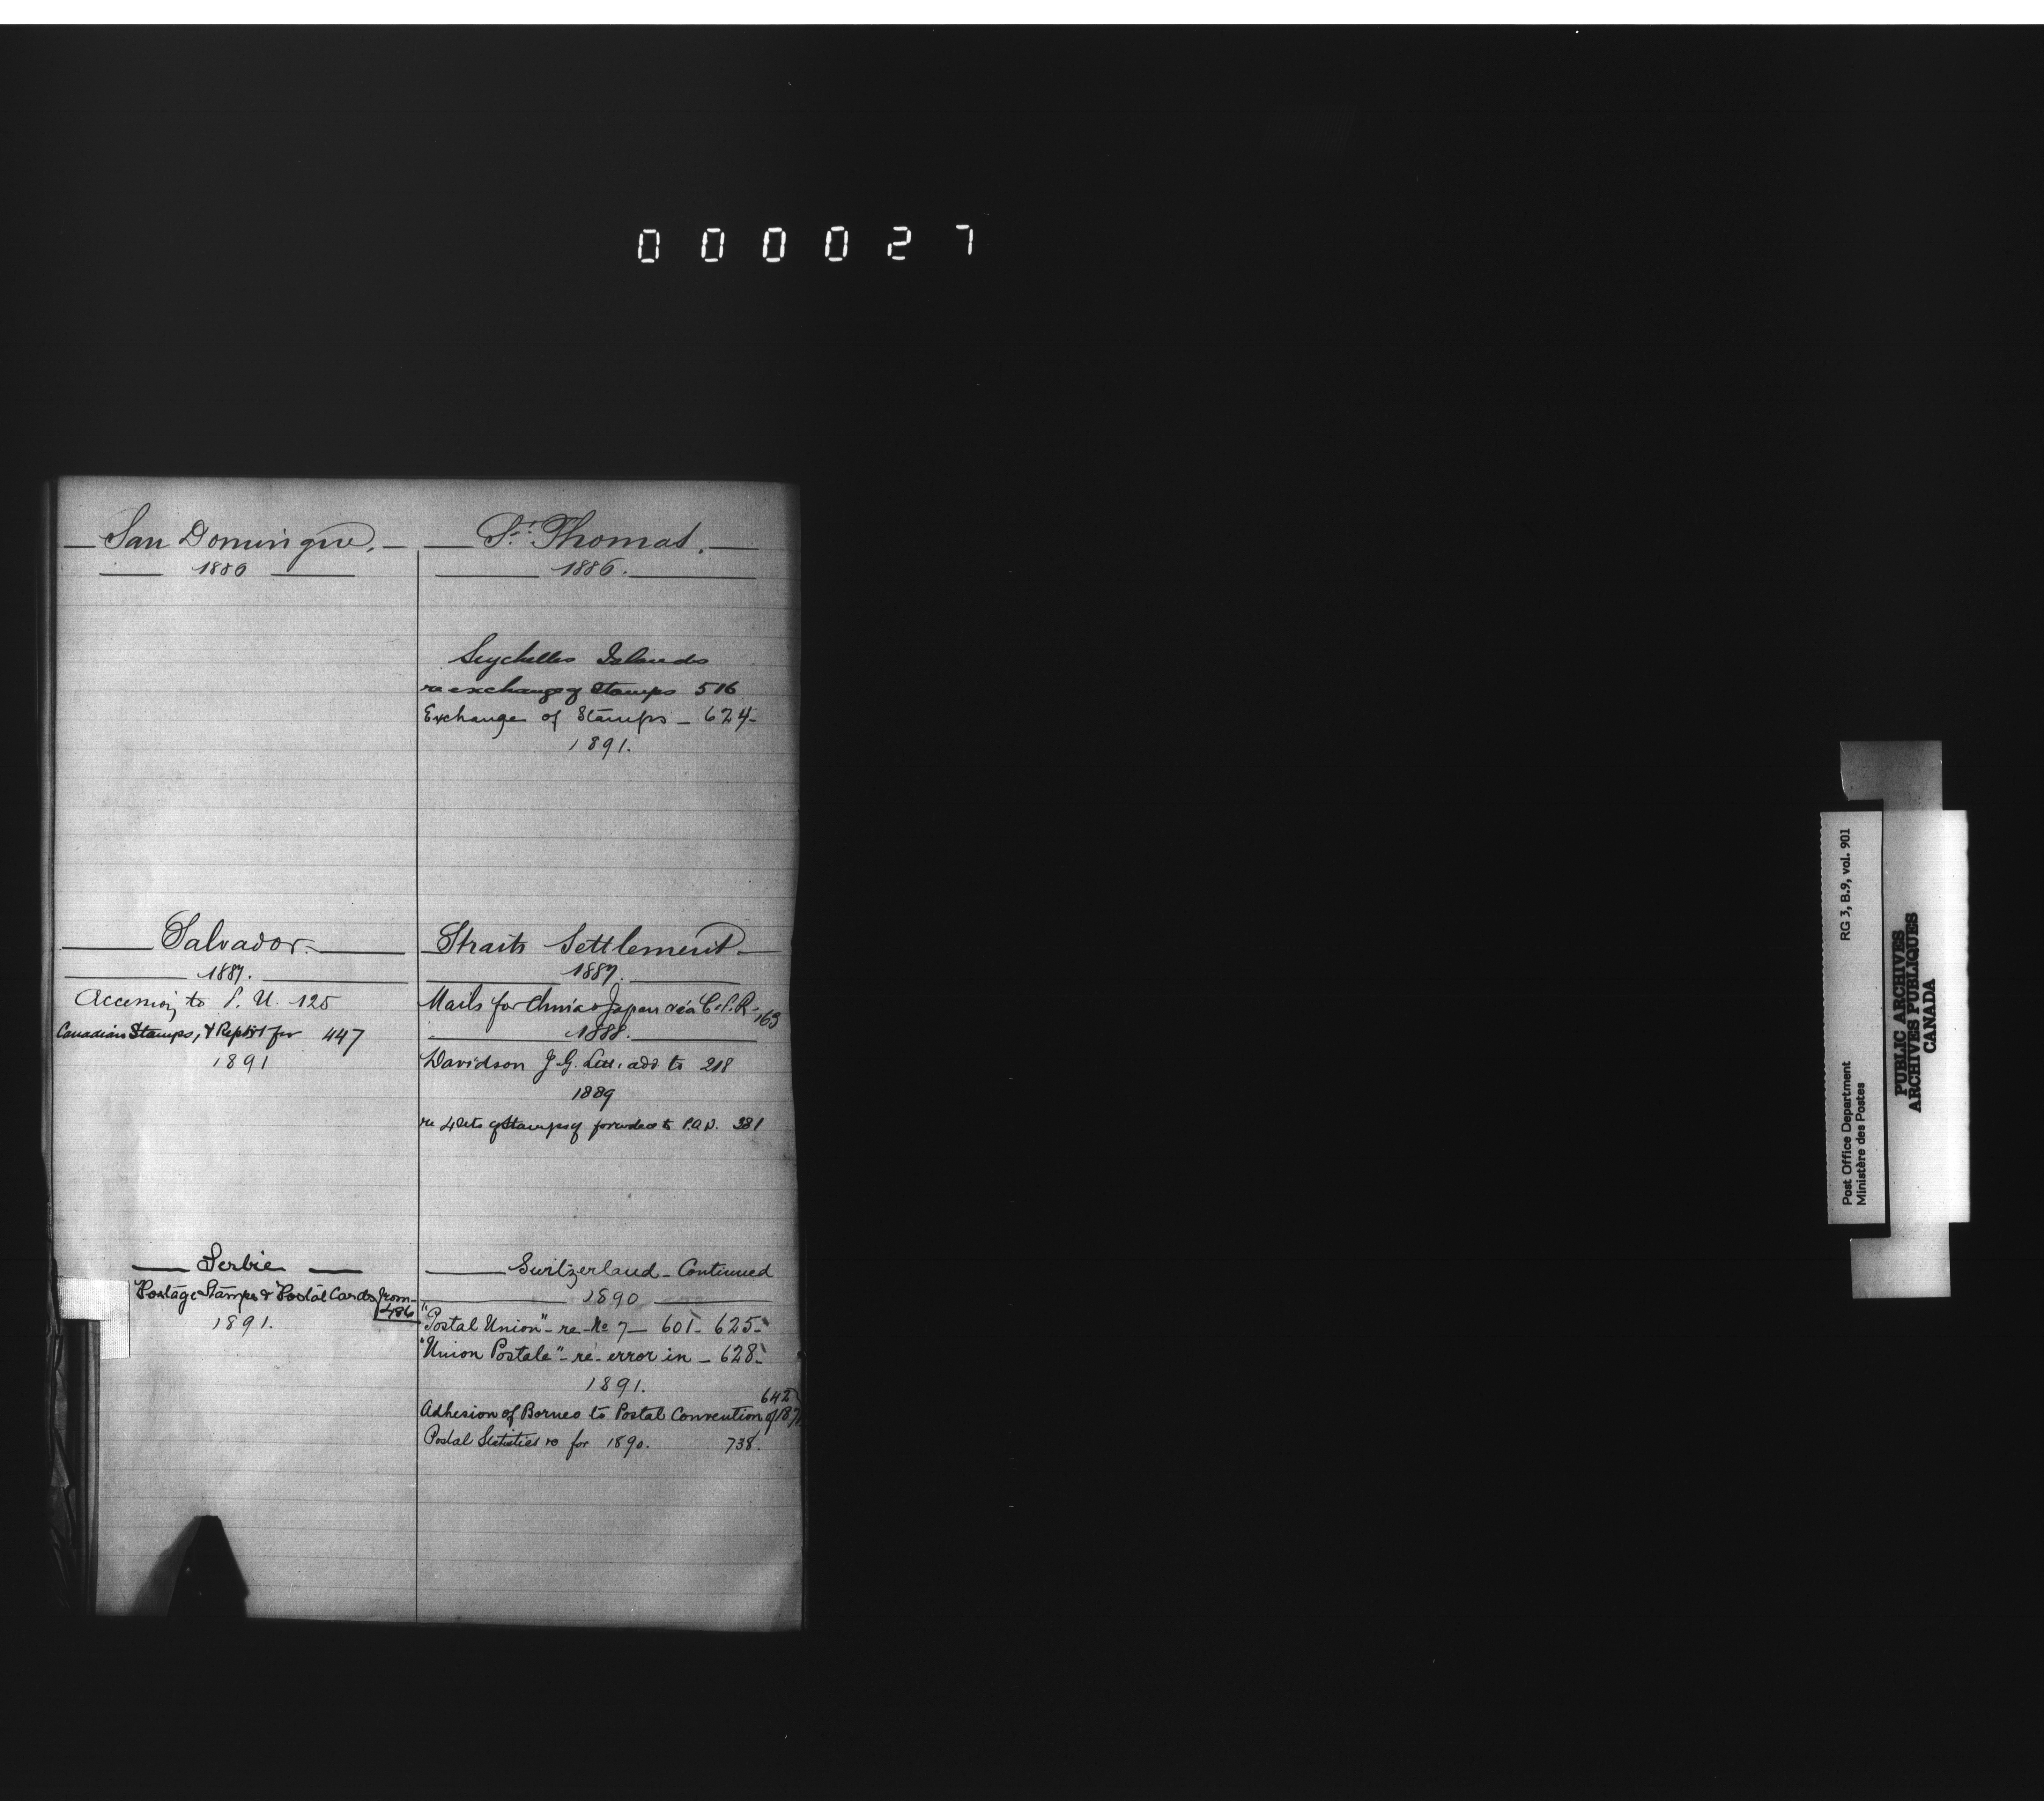 000027
San Domingue.
1886
Salvador.
1887.
Accession to P. U. 125
Canadian Stamps, & Report for 447
1891
Serbie
Postage Stamps & Postal Cards from
486
1891.
St. Thomas.
1886.
Seychelles Islands
re exchange of Stamps 516
Exchange of Stamps - 624-
1891.
Straits Settlement
1887.
Mails for China & Japan via C.P.R. 163
1888.
Davidson J. G. Let. add to 218
1889
re 4 sets of Stamps forwarded to P.O.D. 381
Switzerland - Continued
1890
"Postal Union" - re - No 7 - 601 - 625 -
"Union Postale" - re - error in - 628 -
1891.
642
Adhesion of Borneo to Postal Convention of 187
Postal Statistics re for 1890. 738.
RG 3, B.9, vol. 901
Post Office Department
Ministère des Postes
PUBLIC ARCHIVES
ARCHIVES PUBLIQUES
CANADA